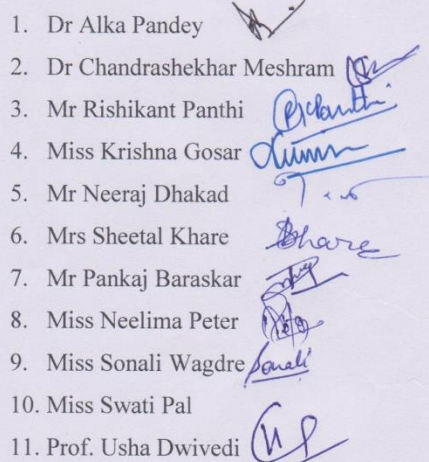 1. Dr Alka Pandey
2. Dr Chandrashekhar Meshram
3. Mr Rishikant Panthi
4. Miss Krishna Gosar
5. Mr Neeraj Dhakad
6. Mrs Sheetal Khare Khare
7. Mr Pankaj Baraskar
8. Miss Neelima Peter
9. Miss Sonali Wagdre Sonali
10. Miss Swati Pal
11. Prof. Usha Dwivedi